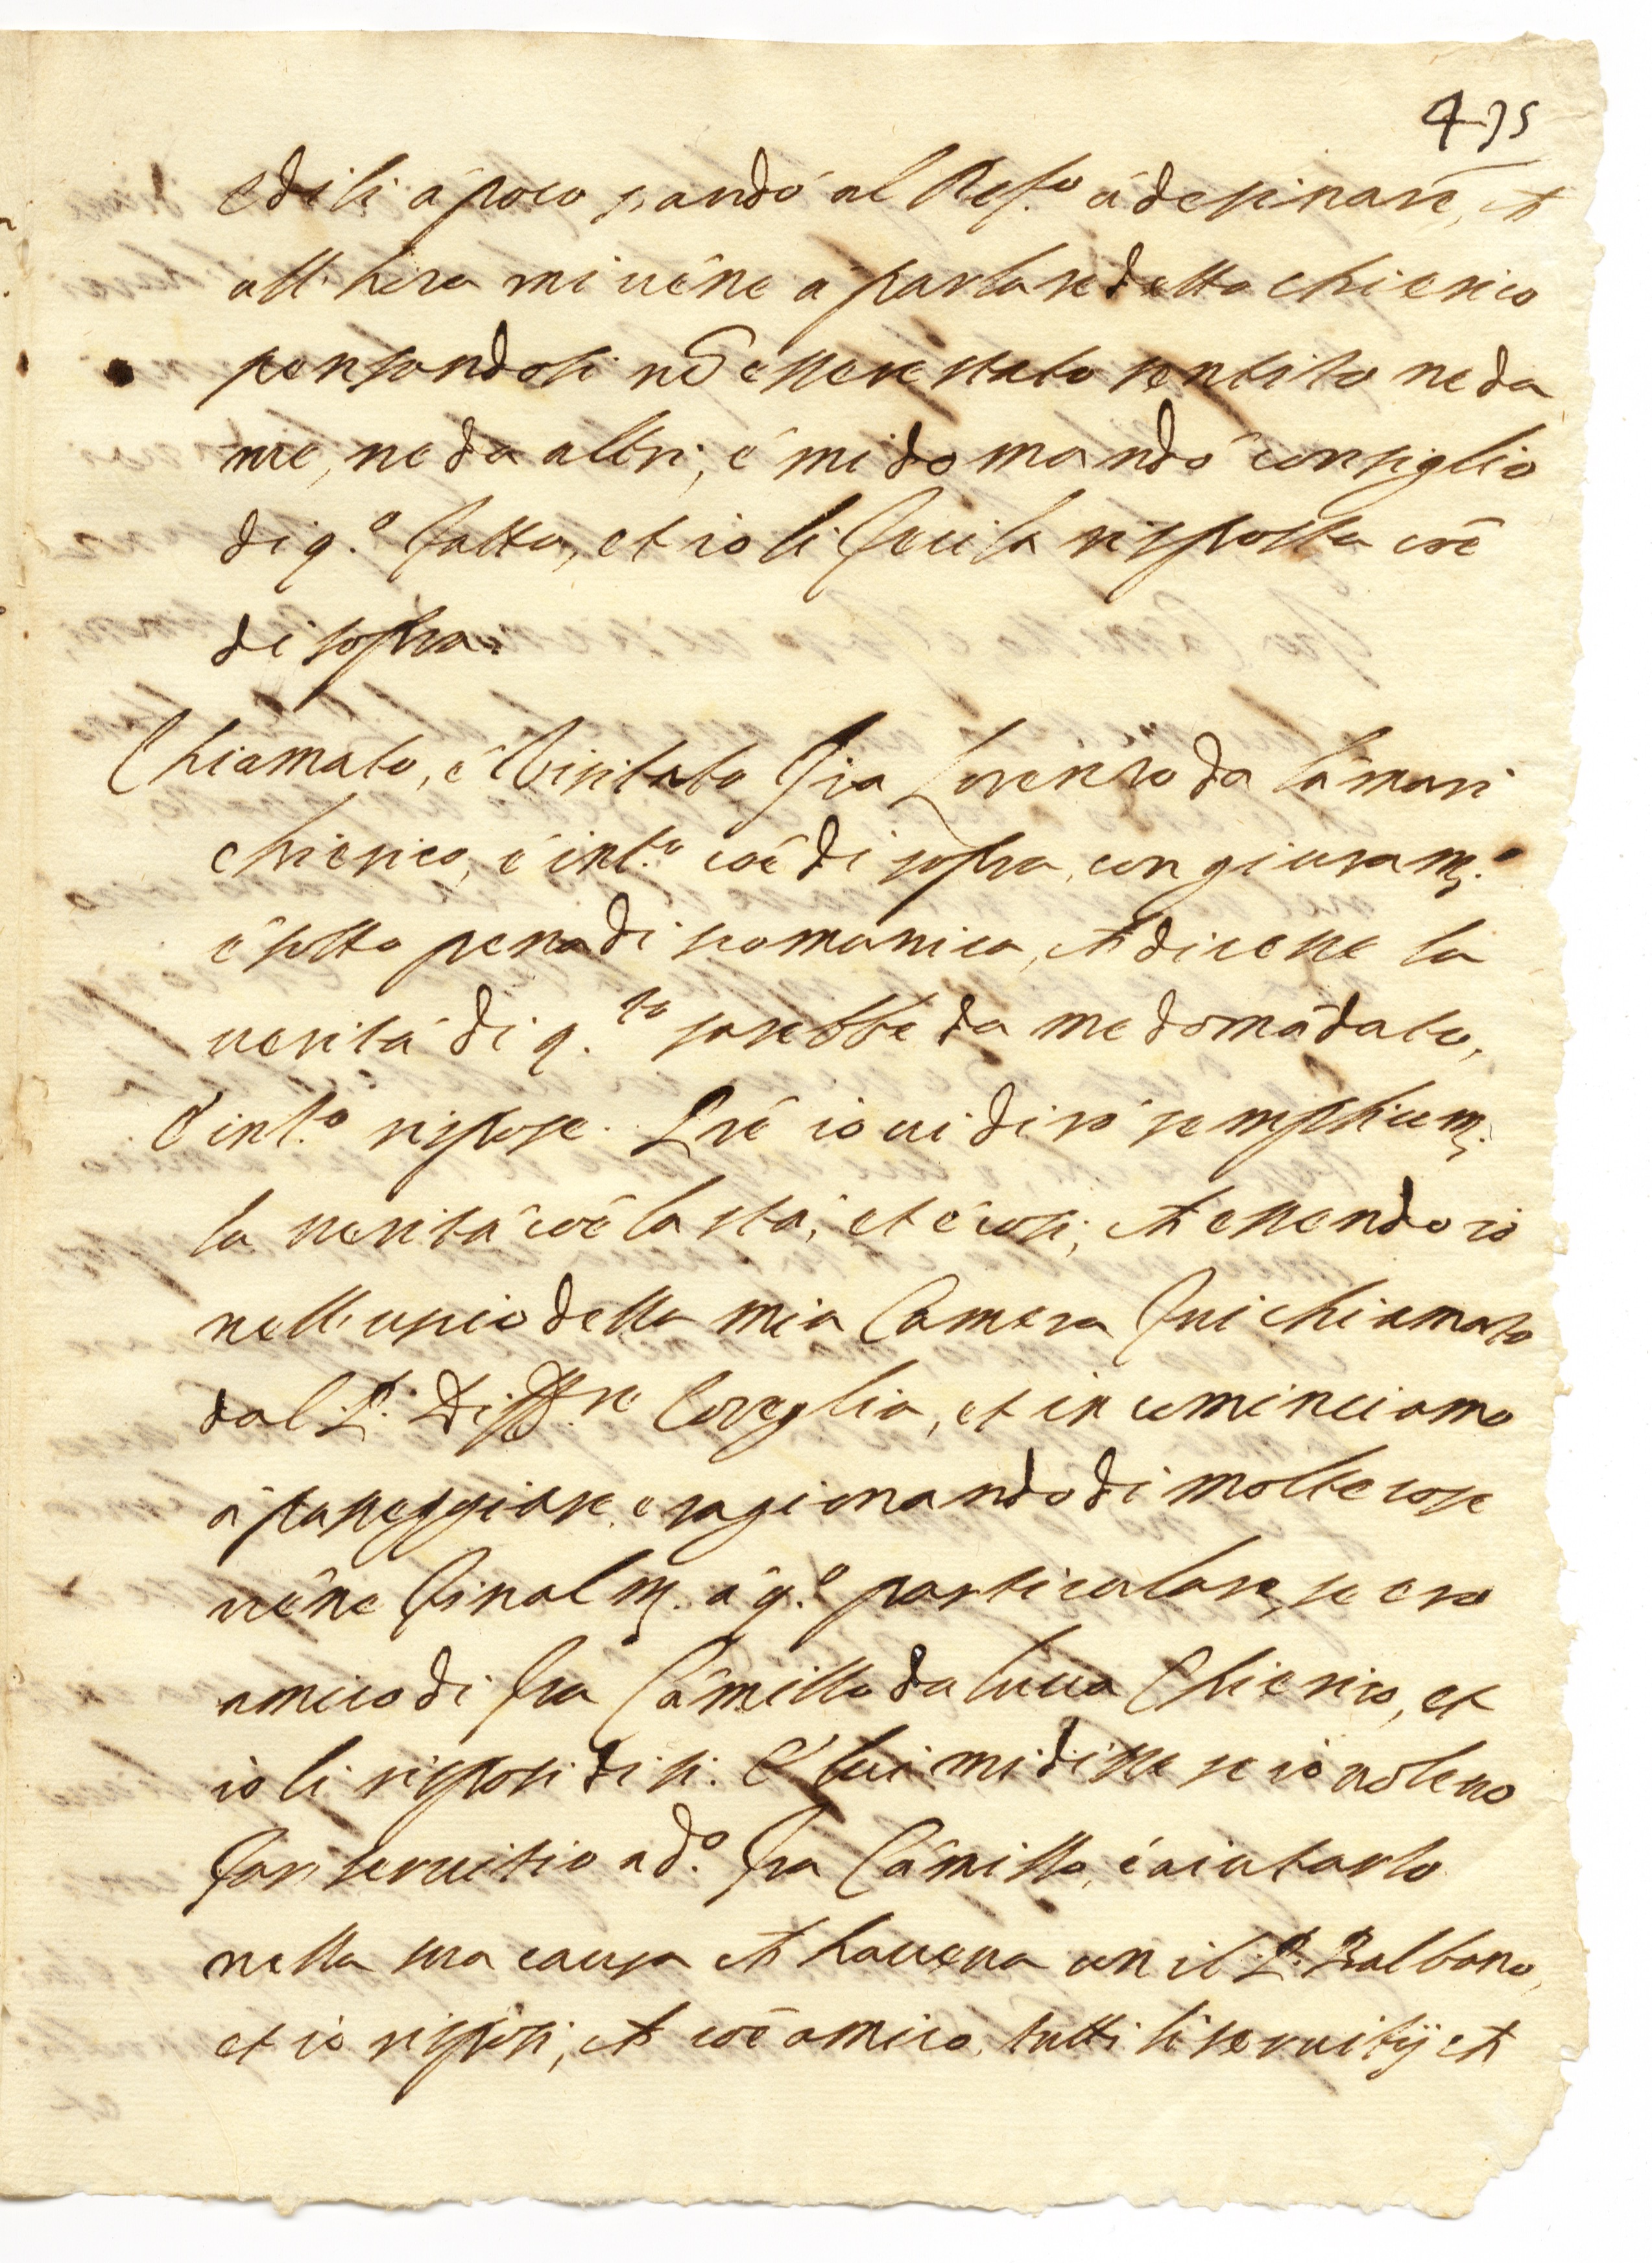 475
e di lì à poco s'andò al Ref.º à desinare, ch
all'hora mi uẽne a parlare detto chierico
pensandosi nõ essere stato sentito ne da
me, ne da altri, é mi domandò consiglio
di q.º fatto, et io li feci la risposta coẽ
di sopra.
Chiamato, é Visitato Fra Lorenzo da Cãmari
chierico, é int.º coẽ di sopra, con giuram.º
é sotto pena di scomunica, ch dicesse la
uerità di q.to sarebbe da me domãdato,
E int.º rispose. Prẽ io ui dirò semplicem.
la uerità coẽ la sta, et é così, ch essendo io
nell'uscio della mia Camera fui chiamato
dal P. Diff.re Coreglia, et in cominciamo
à passeggiare, e ragionando di molte cose
uẽne finalm. à q.º particolare, se ero
amico di fra Cãmillo da Lucca Chierico, et
io li risposi di si. E' lui mi disse se io uoleuo
far seruitio a d.º fra Cãmillo, é aiutarlo
nella sua causa ch haueua con il P. Balbano,
et io risposi, ch coẽ amico, tutti li seruitij ch